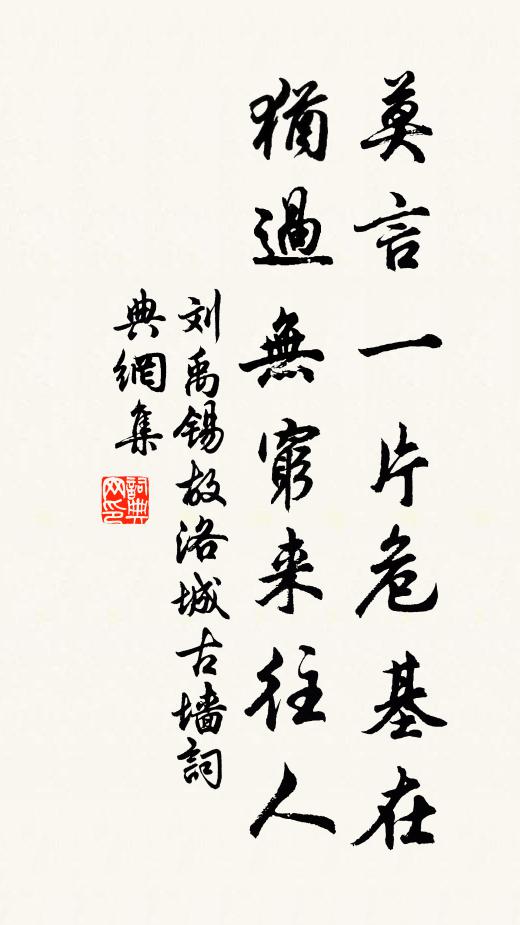 莫言一片危基在
猶過無窮来往人
刘禹锡故洛城古墙詞
典網集
詞典
网印